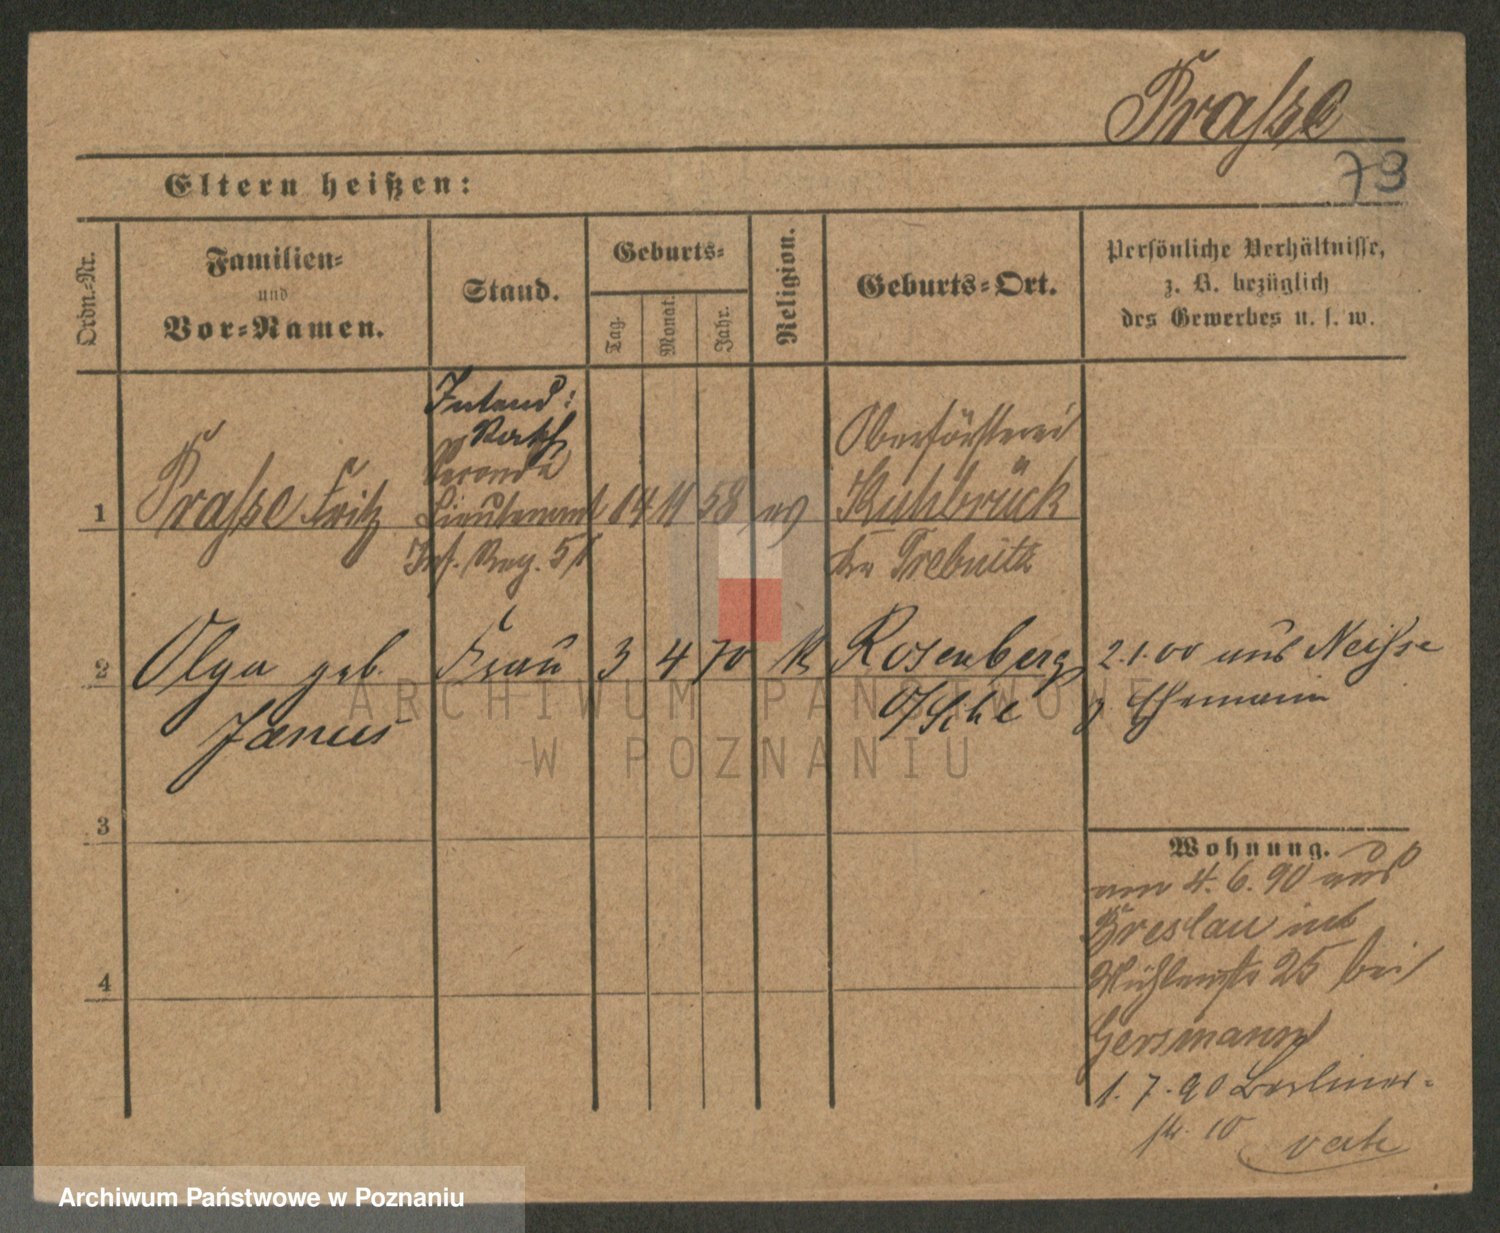 Prasse
73
Eltern heißen:
Ordn.-Nr.
Familien- und Vor-Namen.
Stand.
Geburts-
Tag.
Monat.
Jahr.
Religion.
Geburts-Ort.
Persönliche Verhältnisse,
z. B. bezüglich
des Gewerbes u. s. w.
Intend:
Rath
Seconde
1 Prasse Fritz Lieutenant 14 11 58 ev Oberförsterei
Kuhbrück
Inf. Reg. 51 Kr. Trebnitz
2 Olga geb. Frau 3 4 70 K Rosenberg 2.1.00 aus Neisse
Janus O/Schl z Ehemann
ARCHIWUM PAŃSTWOWE
W POZNANIU
3
Wohnung.
am 4.6.90 aus
Breslau
Mühlenstr 25 bei
4
Gersmann
1.7.90 Berliner-
str. 10
verte
Archiwum Państwowe w Poznaniu